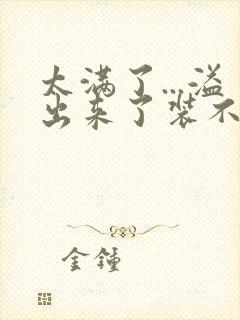 太满了...溢
出来了装不
金锺